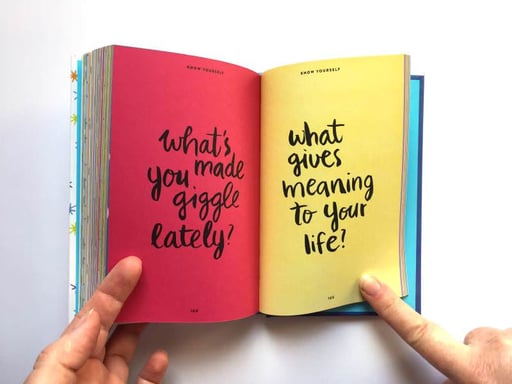 KNOW YOURSELF
what's
made
you
giggle
lately?
KNOW YOURSELF
what
gives
meaning
to your
life?